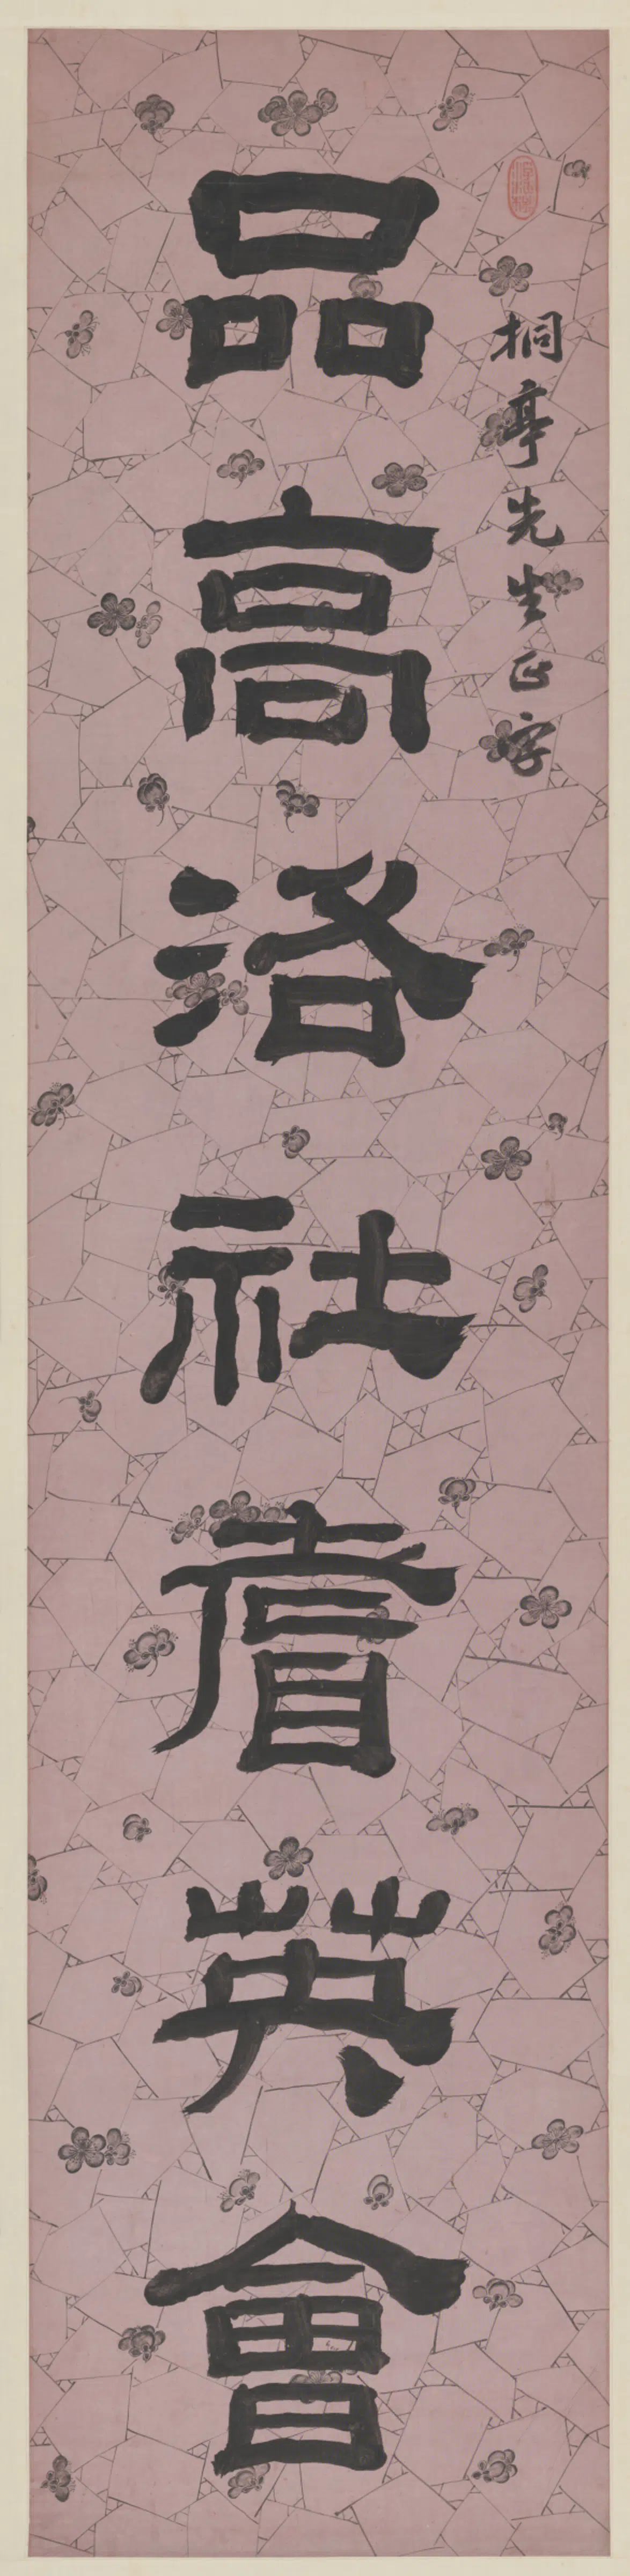 桐亭先生正字
品高洛社耆英會